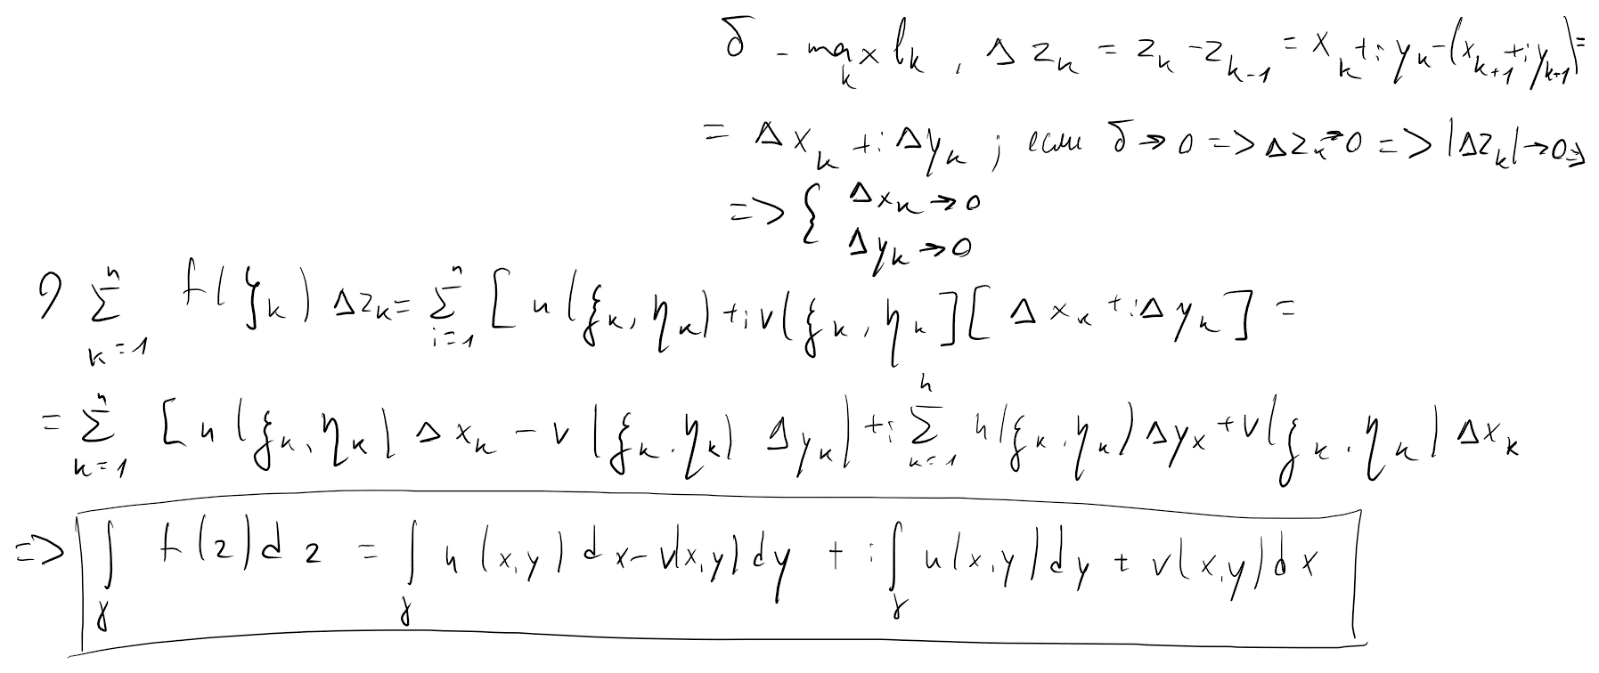 δ - max_k l_k, Δz_k = z_k - z_{k-1} = x_k + i y_k - (x_{k+1} + i y_{k+1}) =
= Δx_k + i Δy_k ; если δ → 0 => Δz_k → 0 => |Δz_k| → 0 =>
=> { Δx_k → 0
Δy_k → 0
∑_{k=1}^{n} f(ζ_k) Δz_k = ∑_{i=1}^{n} [u(ξ_k, η_k) + i v(ξ_k, η_k] [Δx_k + i Δy_k] =
= ∑_{k=1}^{n} [u(ξ_k, η_k) Δx_k - v(ξ_k, η_k) Δy_k] + i ∑_{k=1}^{n} u(ξ_k, η_k) Δy_x + v(ξ_k, η_k) Δx_k
=> ∫_γ f(z) dz = ∫_γ u(x,y) dx - v(x,y) dy + i ∫_γ u(x,y) dy + v(x,y) dx